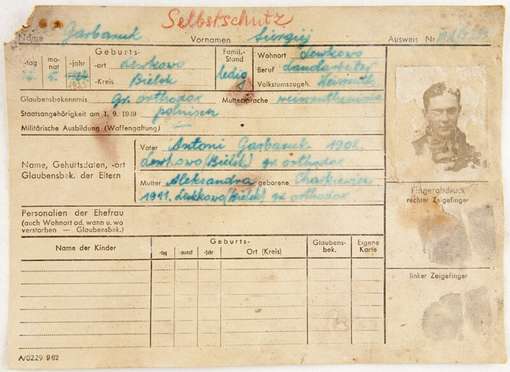 Selbstschutz
Name Garbaruk Vornamen Siergiej Ausweis Nr
Geburts- Famil.-Stand Wohnort Lewkowo
-tag mo-nat -jahr -ort Lewkowo Beruf Landarbeiter
-Kreis Bielsk ledig Volkstumszugeh.
Glaubensbekenntnis gr. orthodox Muttersprache
Staatsangehörigkeit am 1. 9. 1939 polnisch
Militärische Ausbildung (Waffengattung)
Name, Gehurtsdaten, -ort
Glaubensbek. der Eltern
Vater Antoni Garbaruk 1902,
Lewkowo (Bielsk) gr. orthodox
Mutter Aleksandra geborene
1911, (Bielsk) gr. orthodox
Personalien der Ehefrau
(auch Wohnort od. wann u. wo
verstorben — Glaubensbek.)
Name der Kinder Geburts- Glaubens-bek. Eigene Karte
-tag -monat -jahr Ort (Kreis)
Fingerabdruck
rechter Zeigefinger
linker Zeigefinger
A/0229 9 62